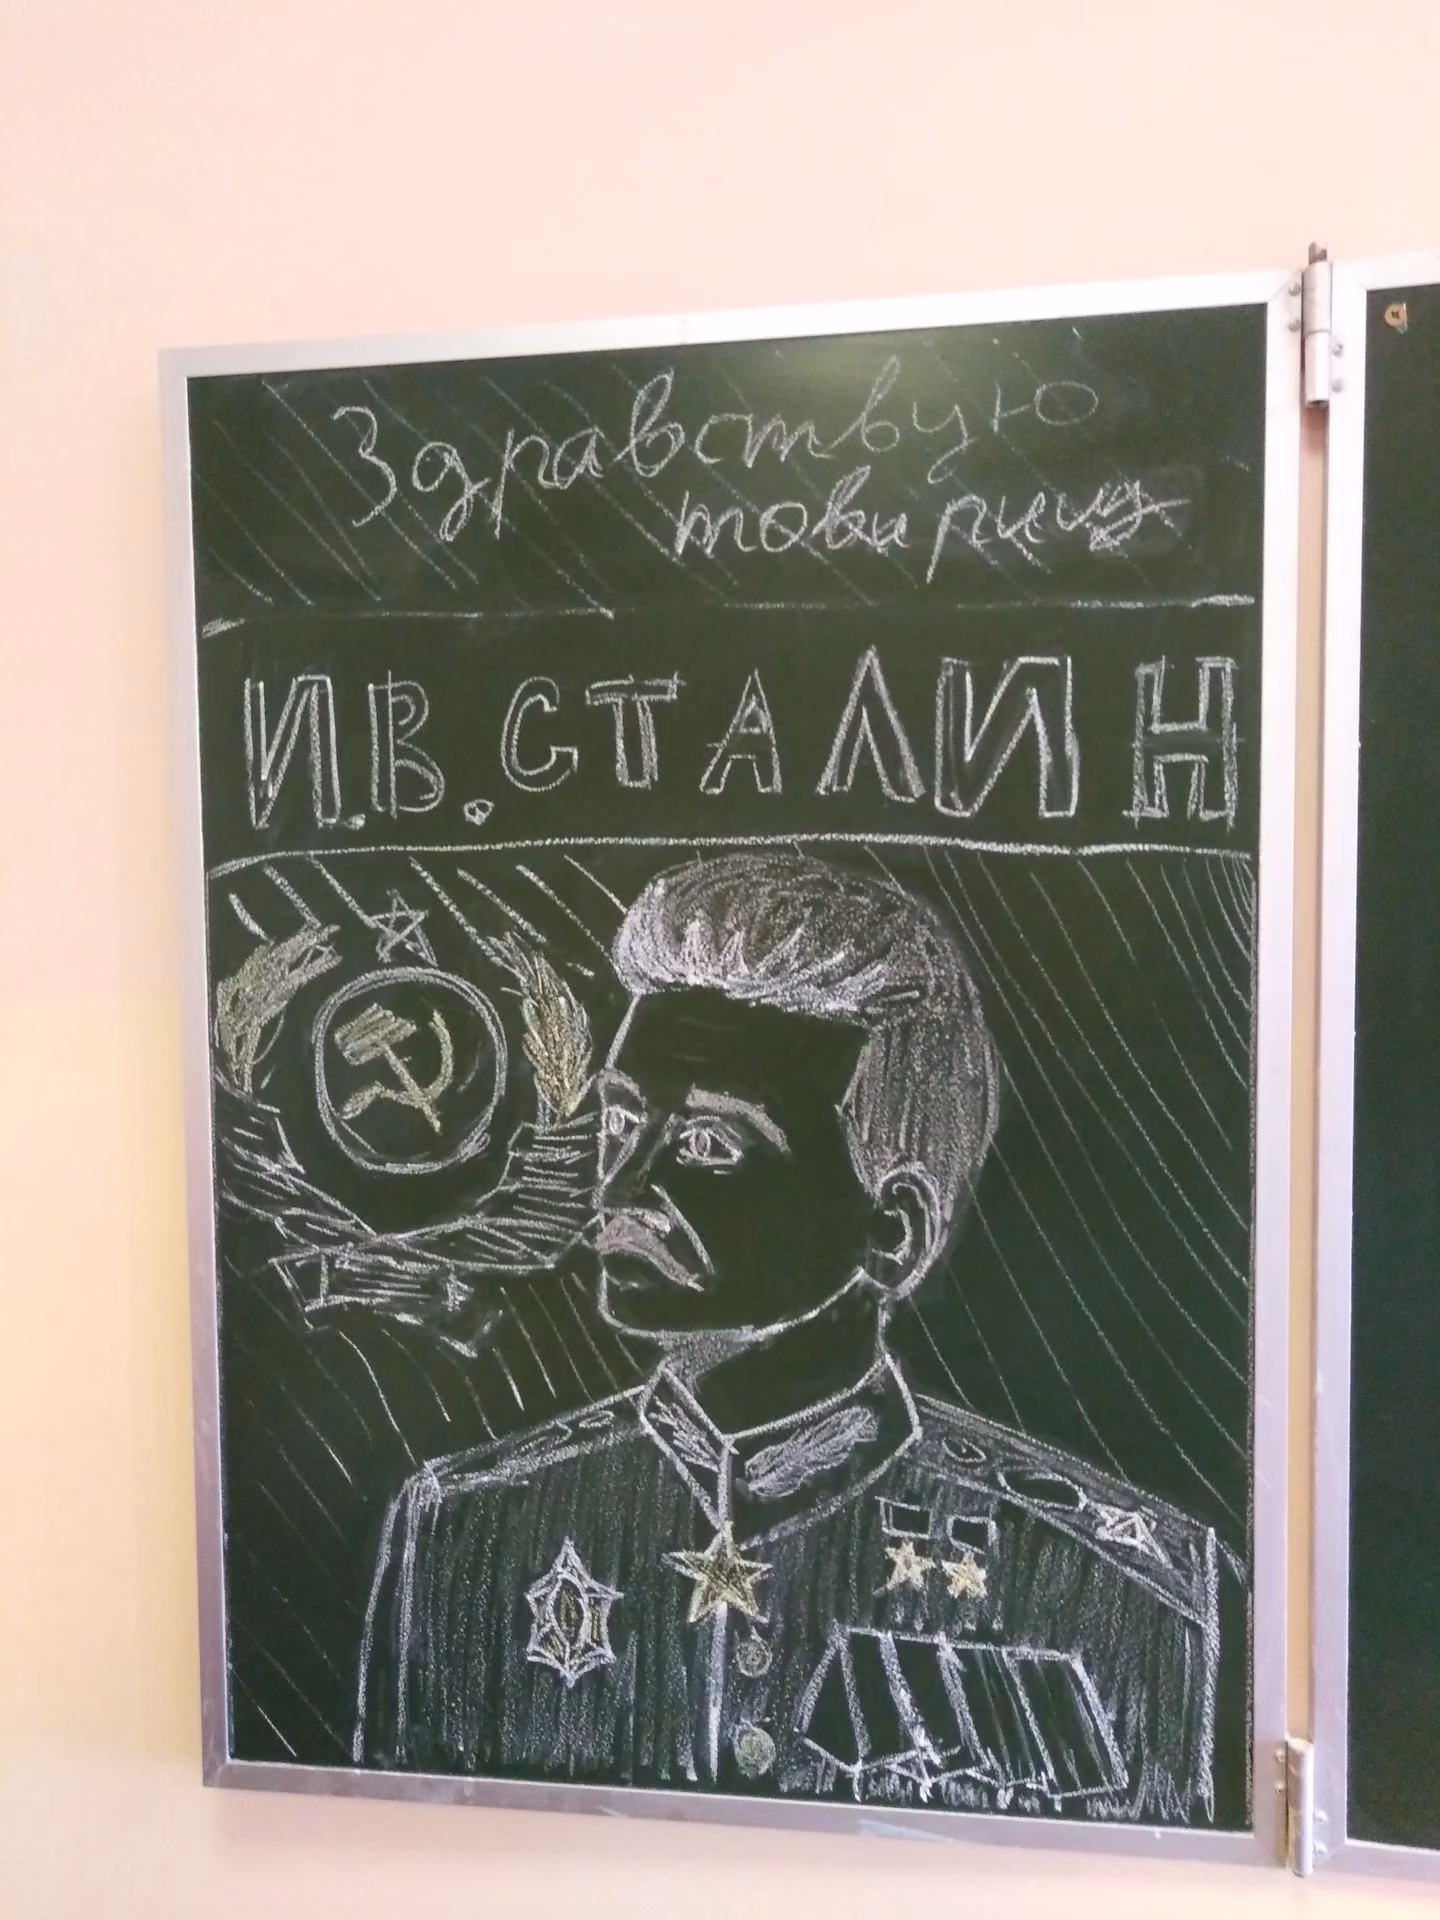 Здравствую
товарищ
И.В. СТАЛИН